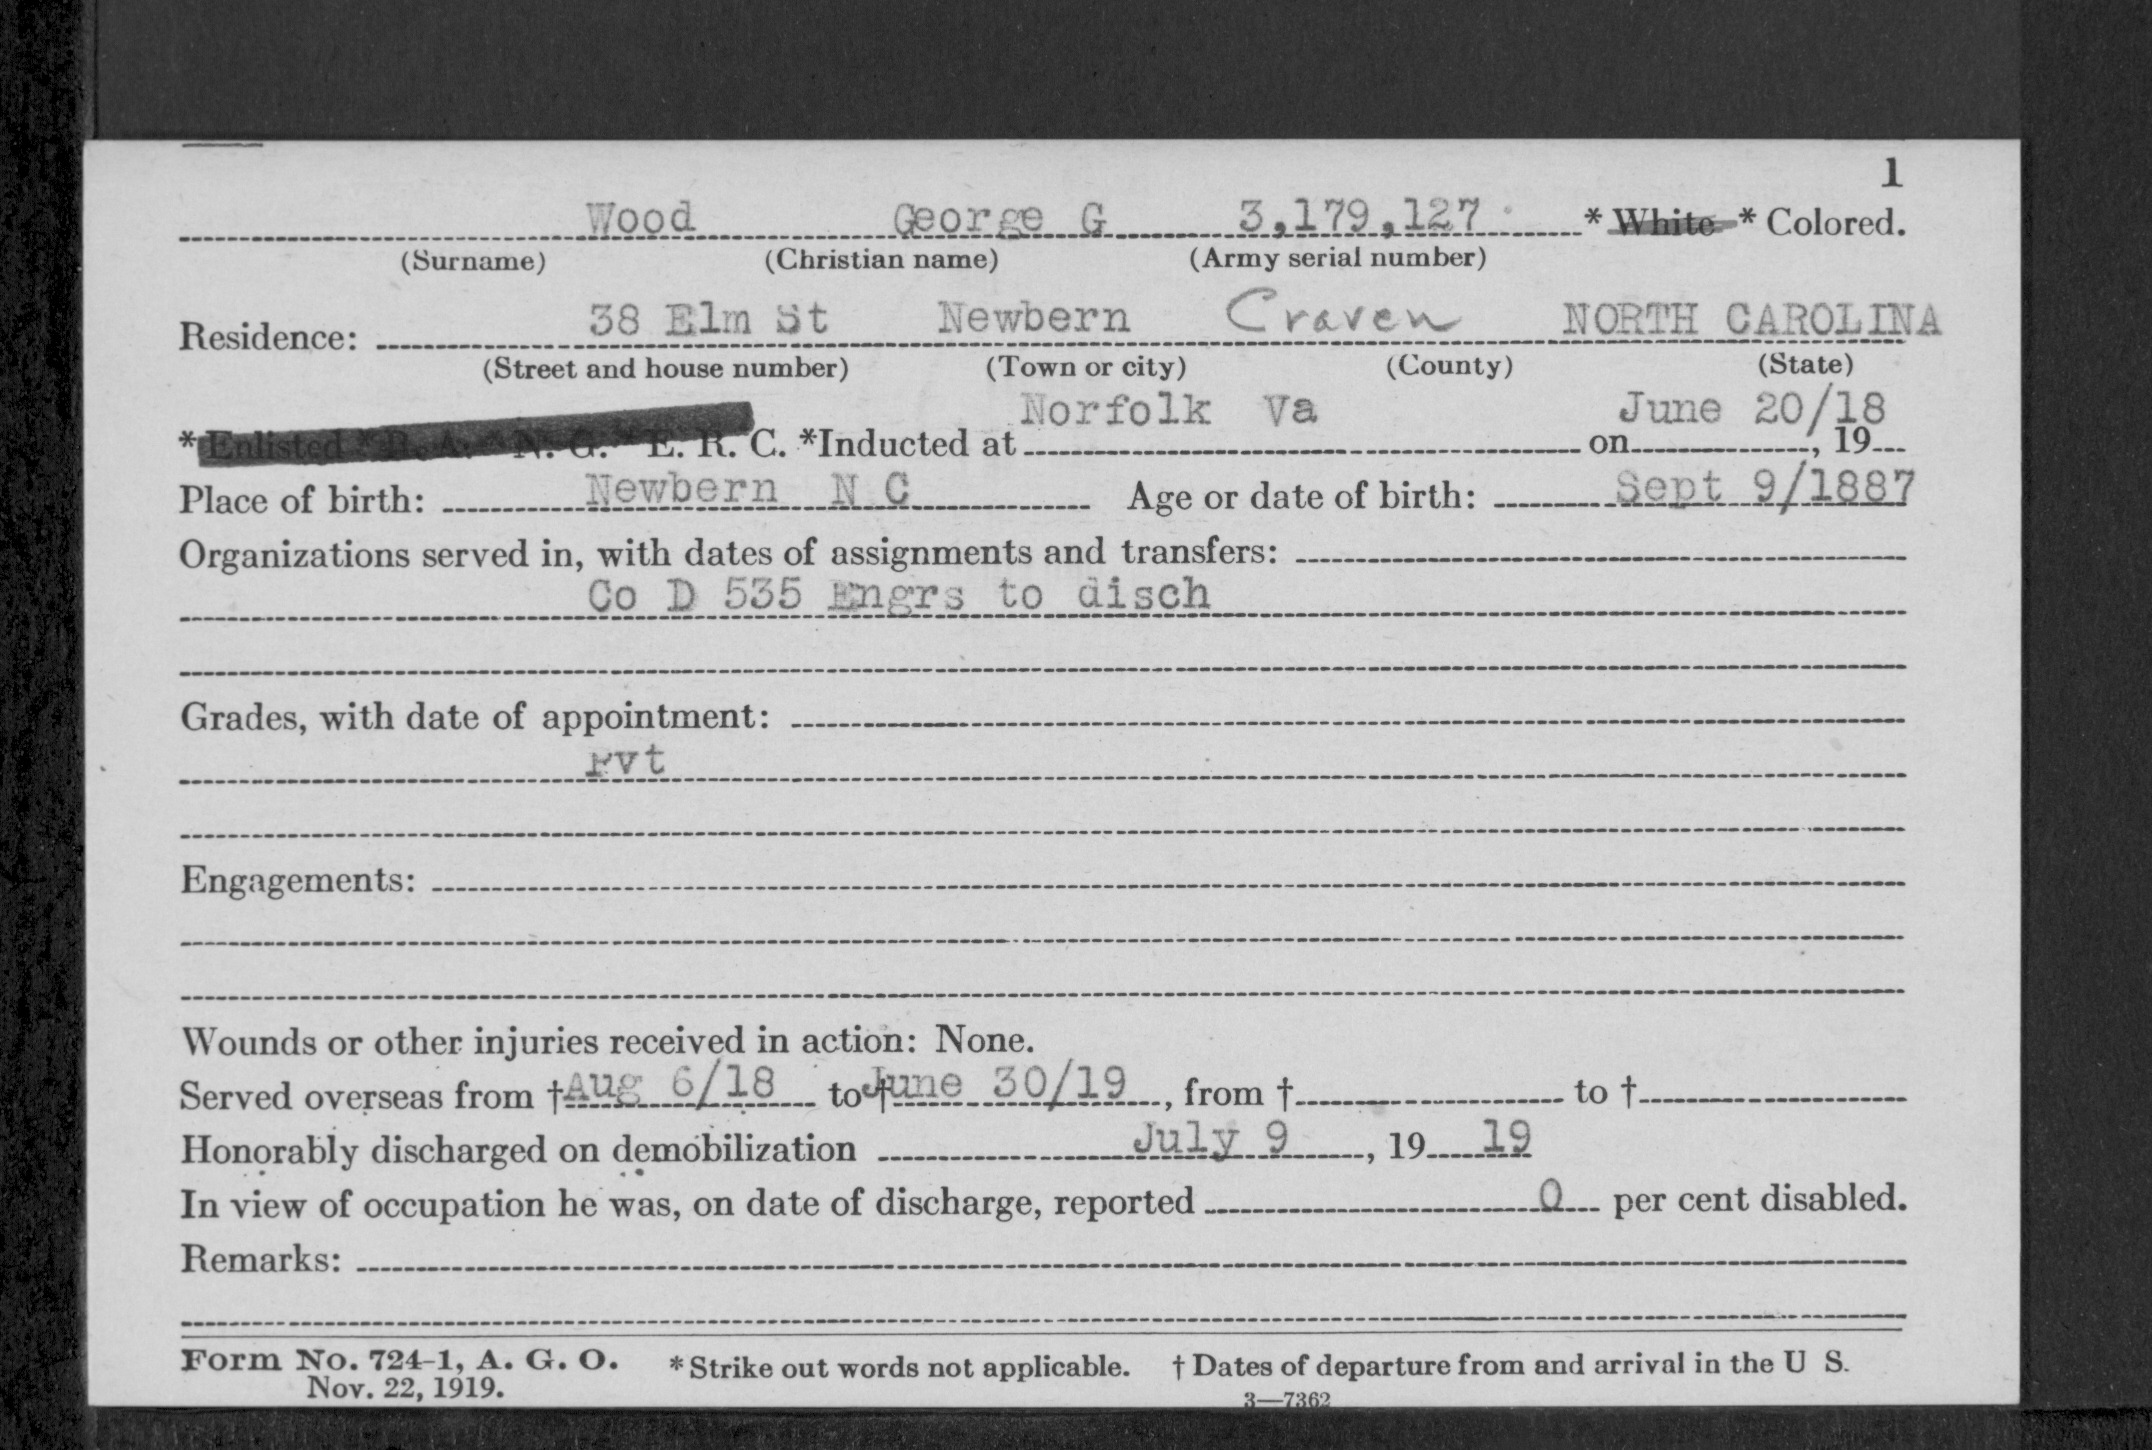 1
Wood George G 3,179,127 * White * Colored.
(Surname) (Christian name) (Army serial number)
Residence: 38 Elm St Newbern Craven NORTH CAROLINA
(Street and house number) (Town or city) (County) (State)
* Enlisted * R. A. * N. G. * E. R. C. *Inducted at Norfolk Va on June 20/18, 19
Place of birth: Newbern N C Age or date of birth: Sept 9/1887
Organizations served in, with dates of assignments and transfers:
Co D 535 Engrs to disch
Grades, with date of appointment:
Pvt
Engagements:
Wounds or other injuries received in action: None.
Served overseas from †Aug 6/18 to †June 30/19, from † to †
Honorably discharged on demobilization July 9, 19 19
In view of occupation he was, on date of discharge, reported 0 per cent disabled.
Remarks:
Form No. 724-1, A. G. O. * Strike out words not applicable. † Dates of departure from and arrival in the U S.
Nov. 22, 1919.
3—7362